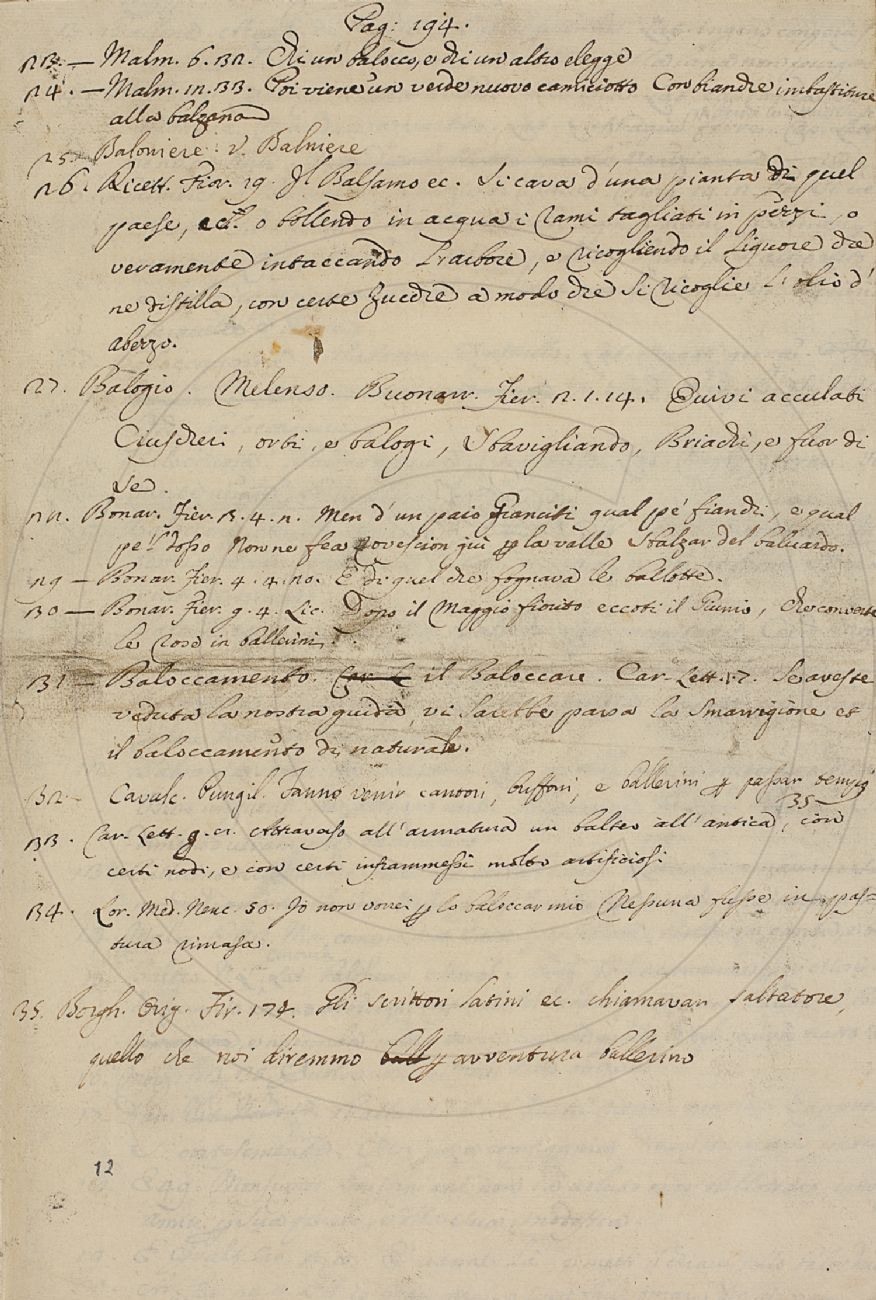 Pag: 194.
23. — Malm. 6. 32. Chi un balocco, e chi un altro elegge
24. — Malm. 11. 33. Poi viene un verde nuovo camiciotto Con bianche imbastiture
alla balzana
25. Baloniere: v. Balniere
26. Ricett. Fior. 19. Il Balsamo ec. si cava d'una pianta di quel
paese, ec. o bollendo in acqua i rami tagliati in pezzi, o
veramente intaccando l'arbore, e ricogliendo il liquore che
ne distilla, con certe zucche a modo che si ricoglie l'olio d'
abezzo.
27. Balogio. Melenso. Buonarr. Fier. 2. 1. 14. Quivi acculati
Ciuscheri, orbi, e balogi, Sbavigliando, Briachi, e fuor di
se.
Bonar. Fier. 3. 4. 2. Men d'un paio Franciti qual pe' fianchi, e qual
pe 'l dosso Non ne fea rovescion giù p la valle Sbalzar del baluardo.
29 — Bonar. Fier. 4. 4. 20. E di quel che sognava le ballotte.
30 — Bonar. Fier. g. 4. Lic. Dopo il Maggio fiorito eccoti il Giunio, che converte
le rose in ballerini.
31 — Baloccamento. il Baloccare. Car. Lett. 17. Se aveste
veduta la nostra guida, vi sarebbe parsa la smarrigione et
il baloccamento di naturale.
32 — Cavalc. Pungil. Fanno venir cantori, buffoni, e ballerini p passar tempo
35
33. Car. Lett. g. Attravaso all'armatura un balteo all'antica, con
certi nodi, e con certi inframmessi molto artificiosi
34. Lor. Med. Nenc. 50. Io non vorrei p lo baloccar mio Nessuna fusse in pas=
tura rimasa.
35. Borgh. Orig. Fir. 174. Gli scrittori latini ec. chiamavan saltatore,
quello che noi diremmo ball p avventura ballerino
12